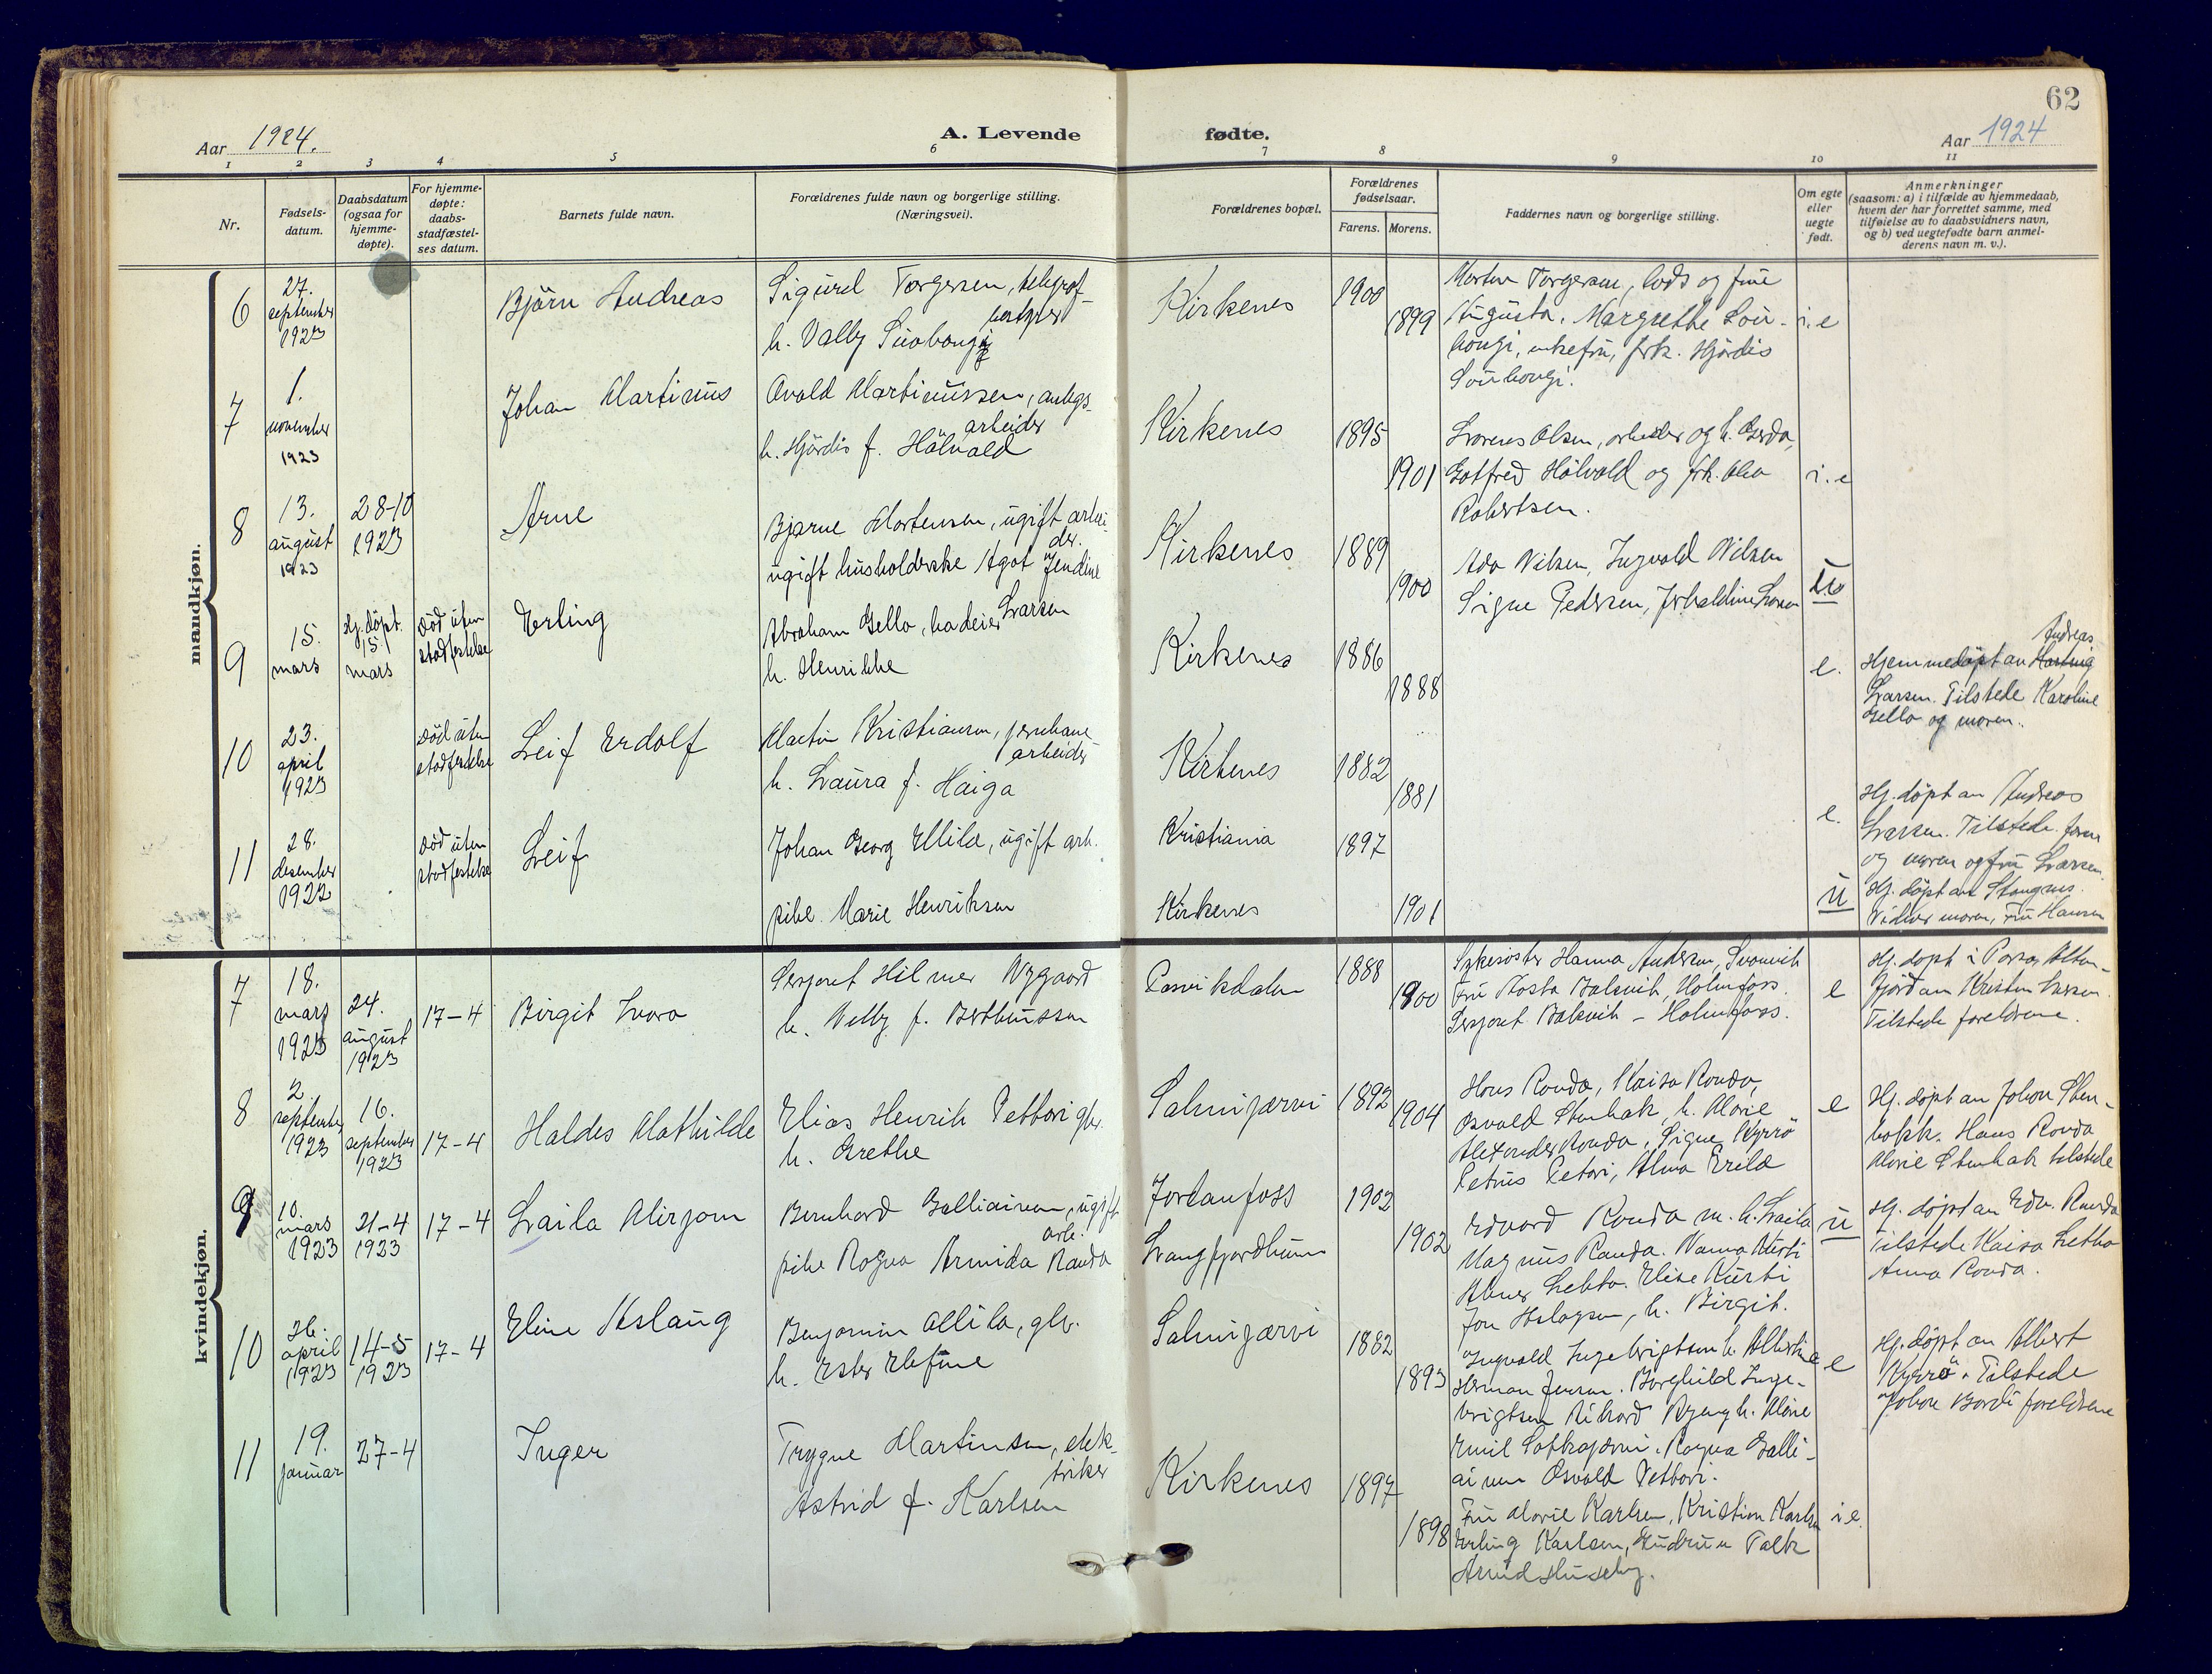 62
Aar 1924.
A. Levende fødte.
Aar 1924
1 2 3 4 5 6 7 8 9 10 11
Nr.
Fødsels-
datum.
Daabsdatum
(ogsaa for
hjemme-
døpte).
For hjemme-
døpte:
daabs-
stadfæstel-
ses datum.
Barnets fulde navn.
Forældrenes fulde navn og borgerlige stilling.
(Næringsvei).
Forældrenes bopæl.
Forældrenes
fødselsaar.
Farens. Morens.
Faddernes navn og borgerlige stilling.
Om egte
eller
uegte
født.
Anmerkninger
(saasom: a) i tilfælde av hjemmedaab,
hvem der har forrettet samme, med
tilføielse av to daabsvidners navn,
og b) ved uegtefødte barn anmel-
derens navn m. v.).
mandkjøn.
6
27.
september
1923
Bjørn Andreas
Sigurd Torgersen, telegraf-
h. Valby
Kirkenes
1900
1899
Morten Torgersen, lods og frue
Augusta, Margrethe
enkefru, frk. Hjördis
i. e
7
1.
november
1923
Johan Martinus
Martinussen, anlegs-
arbeider
h. Hjördis f. Hålvold
Kirkenes
1895
1901
Olsen, arbeider og h. Gerda,
Gotfred Hålvold og frk.
Robertsen.
i. e
8
13.
august
1923
28-10
1923
Arne
Bjarne Mortensen, ugift arbei-
der.
ugift husholderske Agot Jendine
Larsen
Kirkenes
1889
1900
Nilsen, Ingvald Nilsen
Signe Pedersen,
u
9
15.
mars
Hj. döpt.
15.
mars
Död uten
stadfestelse
Erling
Abraham Gello,
h. Henrikke
Kirkenes
1886
1888
e.
Andreas
Hjemmedöpt av Hartvig
Larsen. Tilstede Karoline
Gello og moren.
10
23.
april
1923
Död uten
stadfestelse
Leif Erdolf
Martin Kristiansen, jernbane
arbeider
h. Laura f. Haiga
Kirkenes
1882
1881
e.
Hj. döpt av Andreas
Larsen. Tilstede
og moren og fru Larsen.
11
28.
desember
1922
Död uten
stadfestelse
Leif
Johan Georg Ellila, ugift arb.
pike Marie Henriksen
Kristiania
Kirkenes
1897
1901
u
Hj. döpt av
moren, Fru Hansen
kvindekjøn.
7
18.
mars
1923
24.
august
1923
17-4
Birgit Lvara
Sersjant Hilmer Nygaard
h. Nelly f. Berthinssen
Pasvikdalen
1888
1900
Sykesöster Hanna Andersen, Svanvik
Fru Balsvik, Holmfoss.
Sersjant Balsvik - Holmfoss.
e
Hj. döpt i
av Kristen Larsen
Tilstede foreldrene.
8
2.
september
1923
16.
september
1923
17-4
Haldes Mathilde
Elias Henrik Pettari gbr.
h. Grethe
Salmijærvi
1892
1904
Hans Randa, Kaisa Randa,
Osvald Stenbak, h. Marie
Alexander Randa, Signe Kyrrö
Petrus Petari, Alma
e
Hj. döpt av Johan Sten-
bakk. Hans Randa
Marie Stenbak tilstede
9
10.
mars
1923
21-4
1923
17-4
Laila Mirjam
Bernhard ugift
arb.
pike Ragna Armida Randa
Jordanfoss
Langfjordbunn
1902
1902
Edvard Randa m. h. Laila
Magnus Randa. Nanna Kurti
Elise Kurti
h. Birgit.
u
Hj. döpt av Edv. Randa
Tilstede Kaisa
Anna Randa.
10
26.
april
1923
14-5
1923
17-4
Eline Aslaug
Benjamin Ollila, gbr.
h. Ester
Salmijærvi
1882
1893
Ingvald Ingebrigtsen h. Albertine
Herman Jensen. Borghild Inge-
brigtsen Rikard h. Marie
Emil Ragna
Osvald Pettari.
e
Hj. döpt av Albert
Kyrrö. Tilstede
Johan foreldrene
11
19.
januar
27-4
Inger
Trygve Martinsen, elek-
triker
Astrid f. Karlsen
Kirkenes
1897
1898
Fru Marie Karlsen, Kristian Karlsen
Erling Karlsen, Gudrun Falk
Arvid Huseby.
i e.